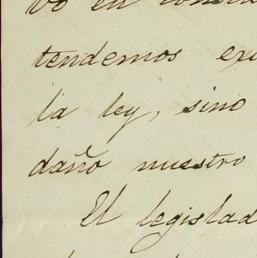 vo en consid
tendemos ex
la ley, sino
daño nuestro
El legislad